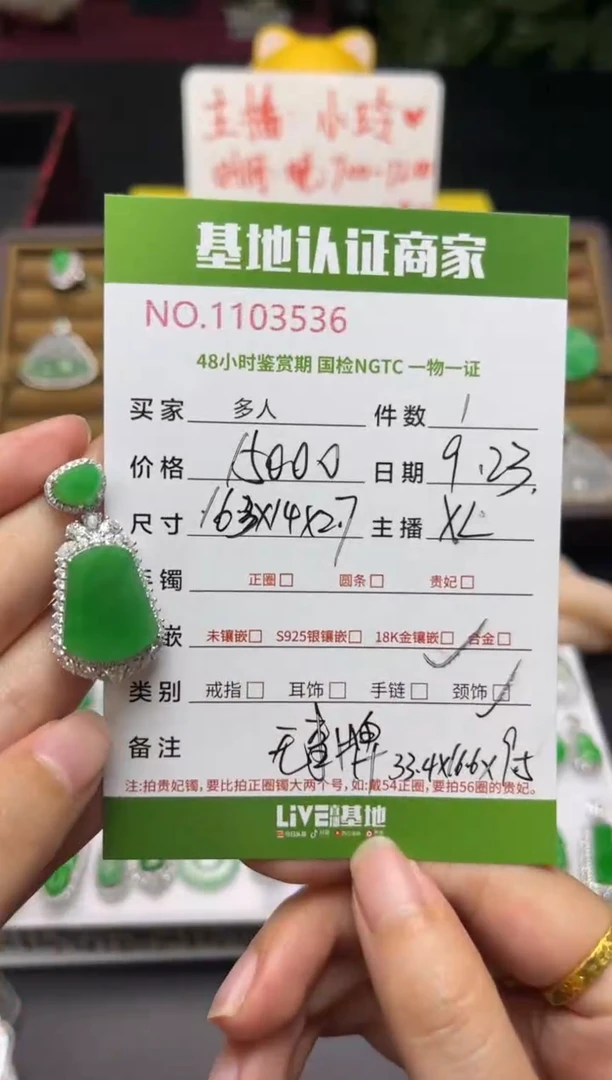 主播 小玲❤
晚:7:00-12:00
基地认证商家
NO.1103536
48小时鉴赏期 国检NGTC 一物一证
买家 多人 件数 1
价格 15000 日期 9.23.
尺寸 16.3X14X2.7 主播 XL
镯 正圈□ 圆条□ 贵妃□
嵌 未镶嵌□ S925银镶嵌□ 18K金镶嵌□ 合金□
类别 戒指□ 耳饰□ 手链□ 颈饰□
备注 无事牌 33.4X16.6X9.5
注:拍贵妃镯,要比拍正圈镯大两个号,如:戴54正圈,要拍56圈的贵妃。
LiVE直播基地